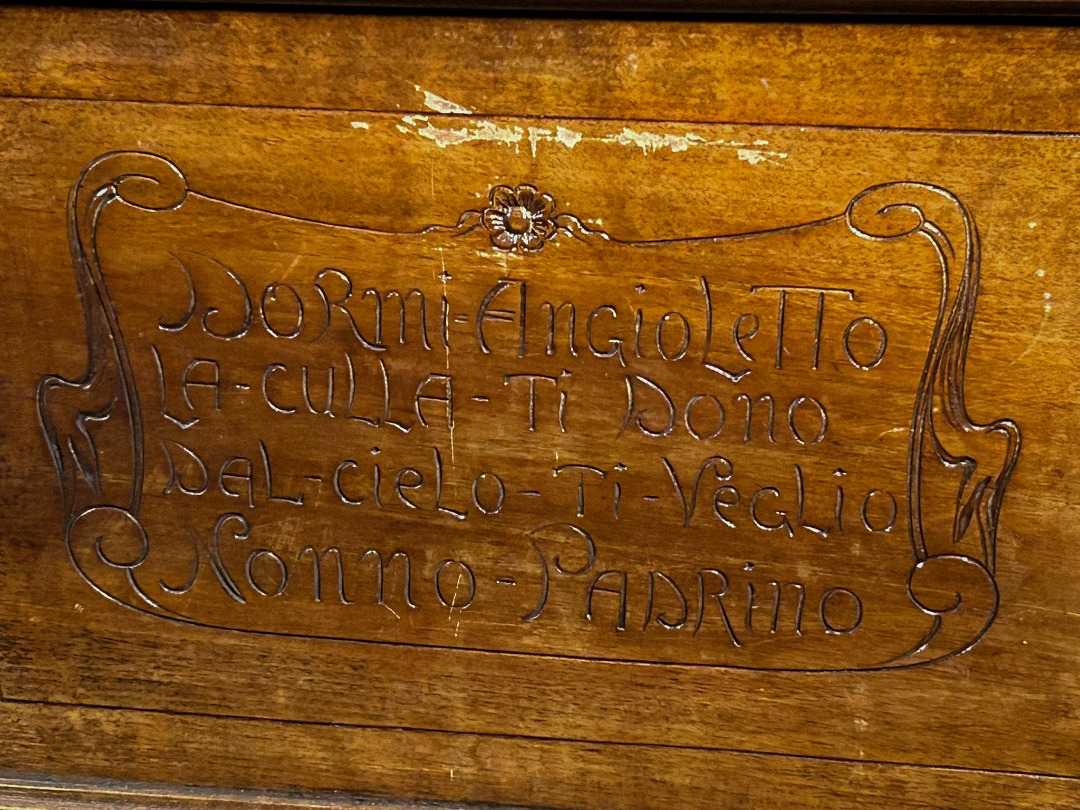 Dormi-Angioletto
La-culla-Ti Dono
Dal-cielo-Ti-Veglio
Nonno-Padrino